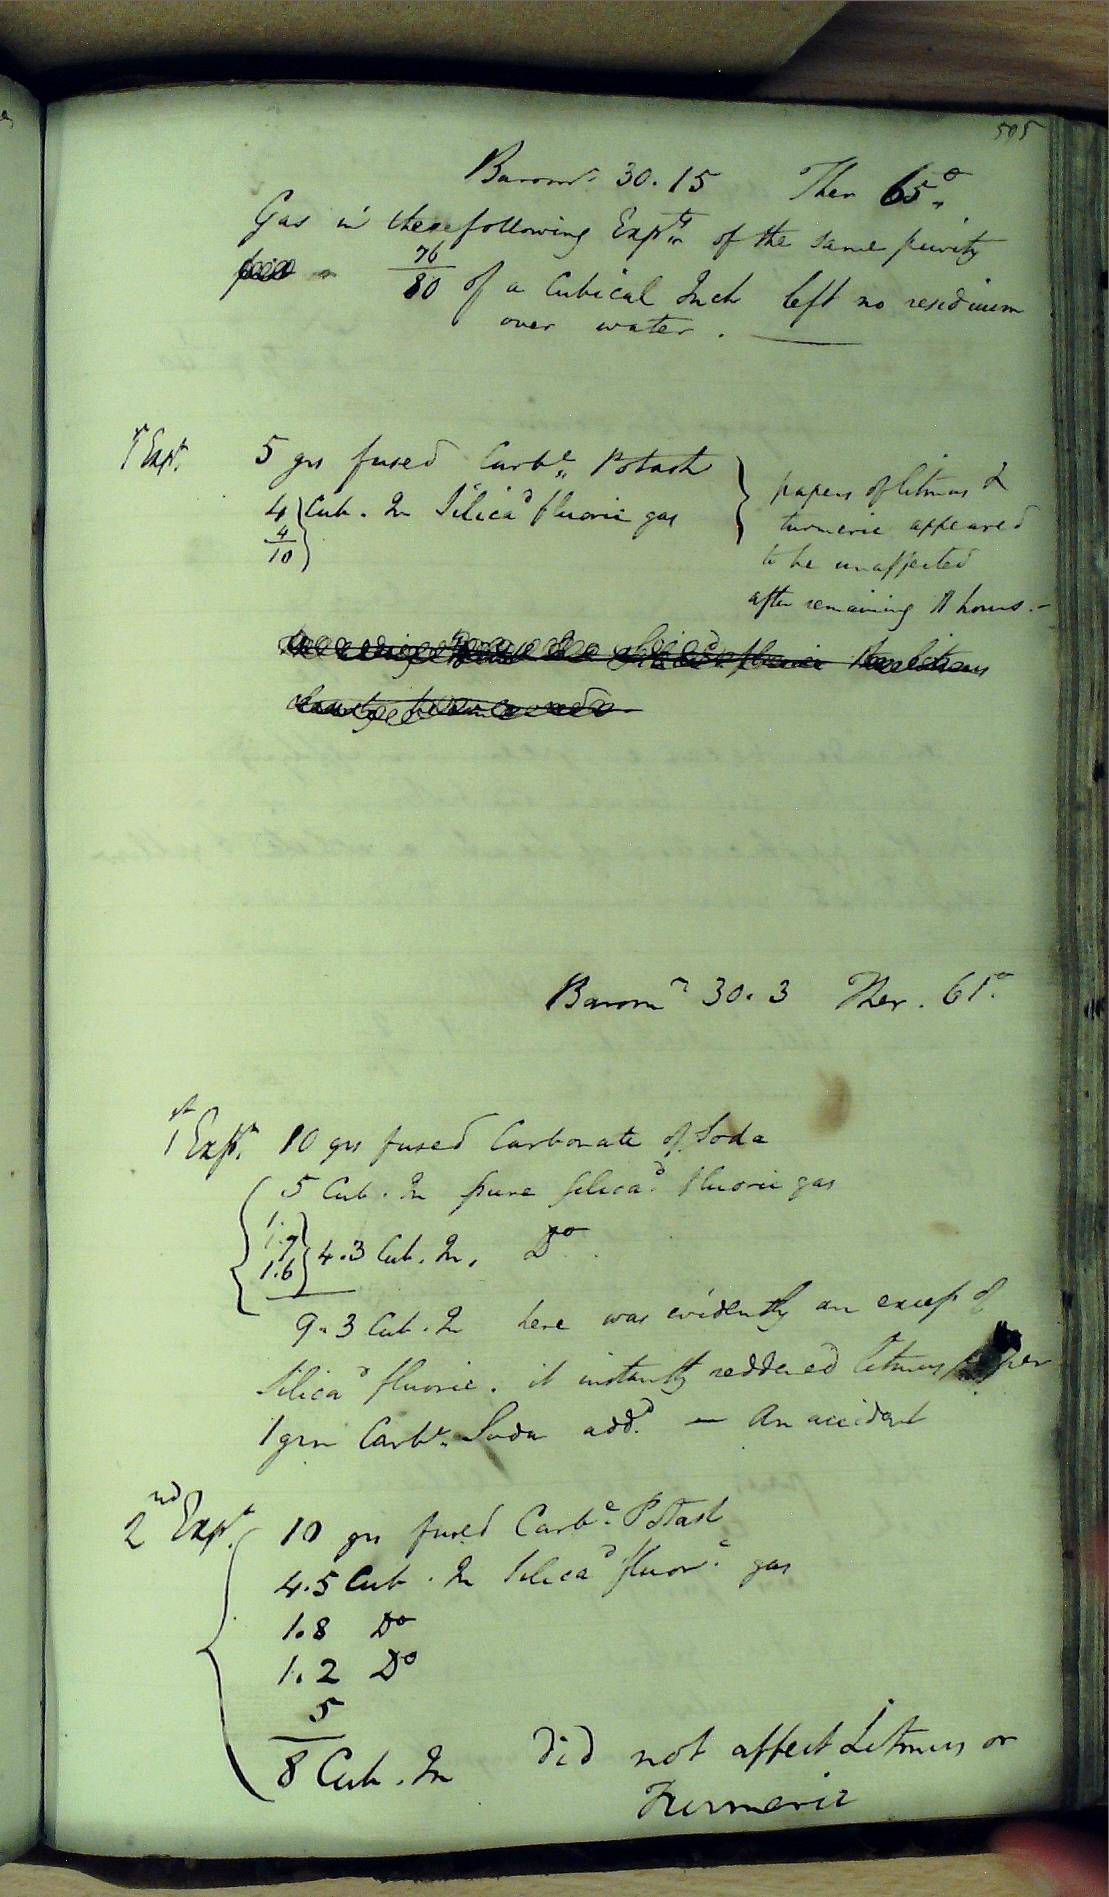 505
Barom.r 30.15 Ther 65°
Gas in these following Exp.ts of the same purity
76/80 of a Cubical Inch left no residuum
over water.
1st Expt. 5 grs fused Carb.e Potash
4 4/10 Cub. In Silica.d fluoric gas
papers of litmus &
turmeric appeared
to be unaffected
after remaining 11 hours.-
Barom.r 30.3 Ther. 61°.
1st Expt. 10 grs fused Carbonate of Soda
5 Cub. In pure silica.d fluoric gas
1.
1.7
1.6
4.3 Cub. In. D°
9.3 Cub. In here was evidently an excess of
Silica.d fluoric. it instantly reddened litmus paper
1 grn Carb.e Soda add.d — An accident
2nd Expt. 10 grs fused Carb.e Potash
4.5 Cub. In Silica.d fluor.c gas
1.8 D°
1.2 D°
5
8 Cub. In did not affect Litmus or
Turmeric